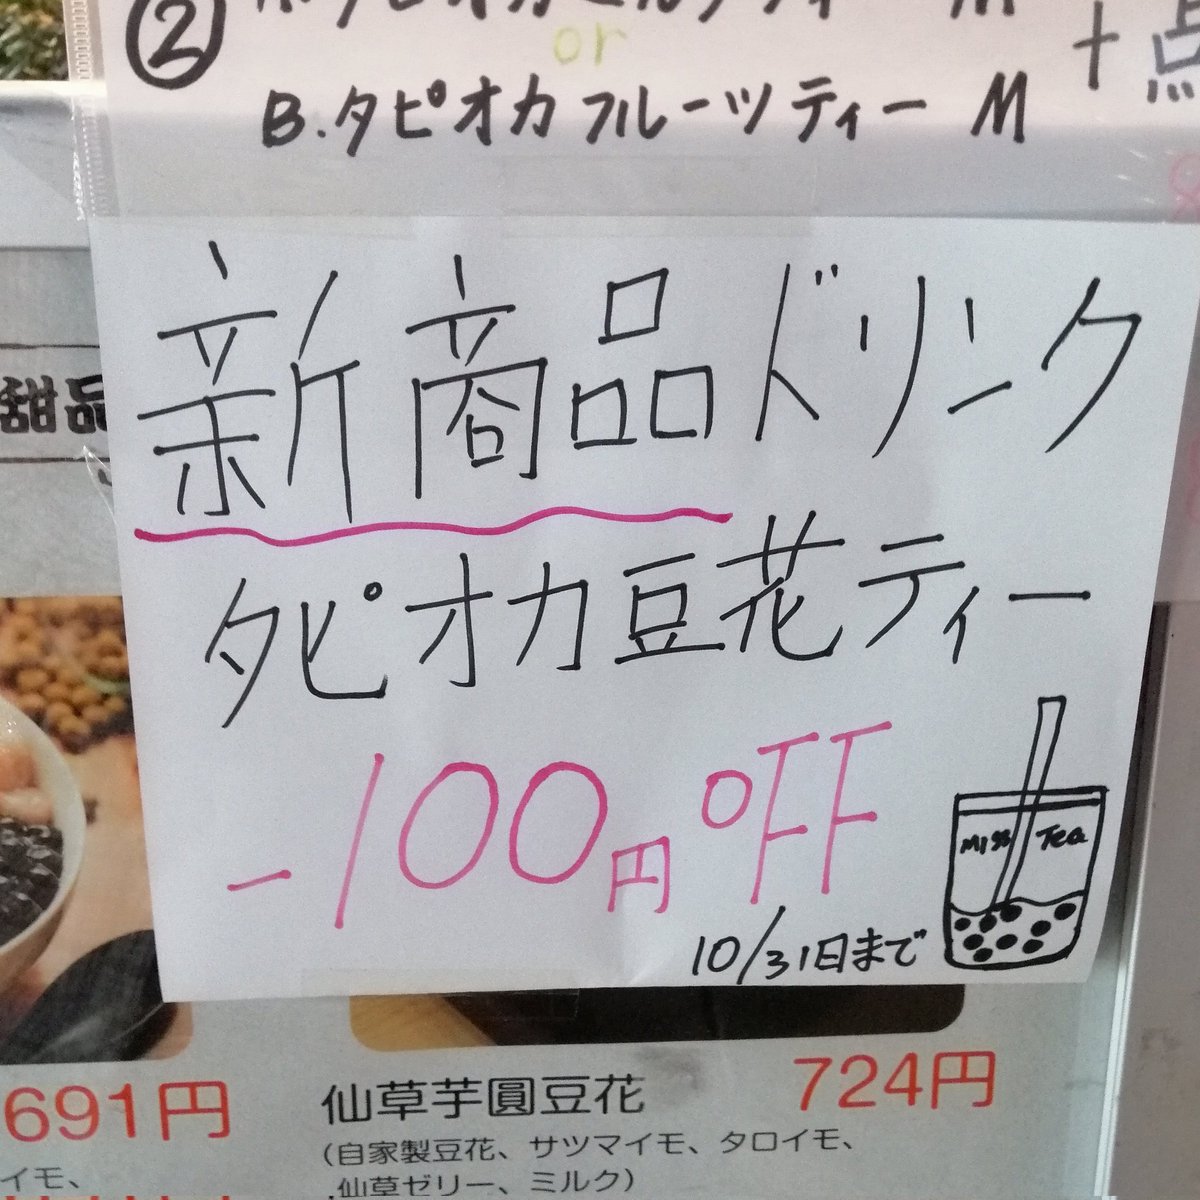 ②
タピオカミルクティー M
or
B.タピオカフルーツティー M
+点
新商品ドリンク
タピオカ豆花ティー
-100円OFF
10/31日まで
Miss Tea
甜品
691円
イモ、
仙草芋圓豆花 724円
(自家製豆花、サツマイモ、タロイモ、
仙草ゼリー、ミルク)